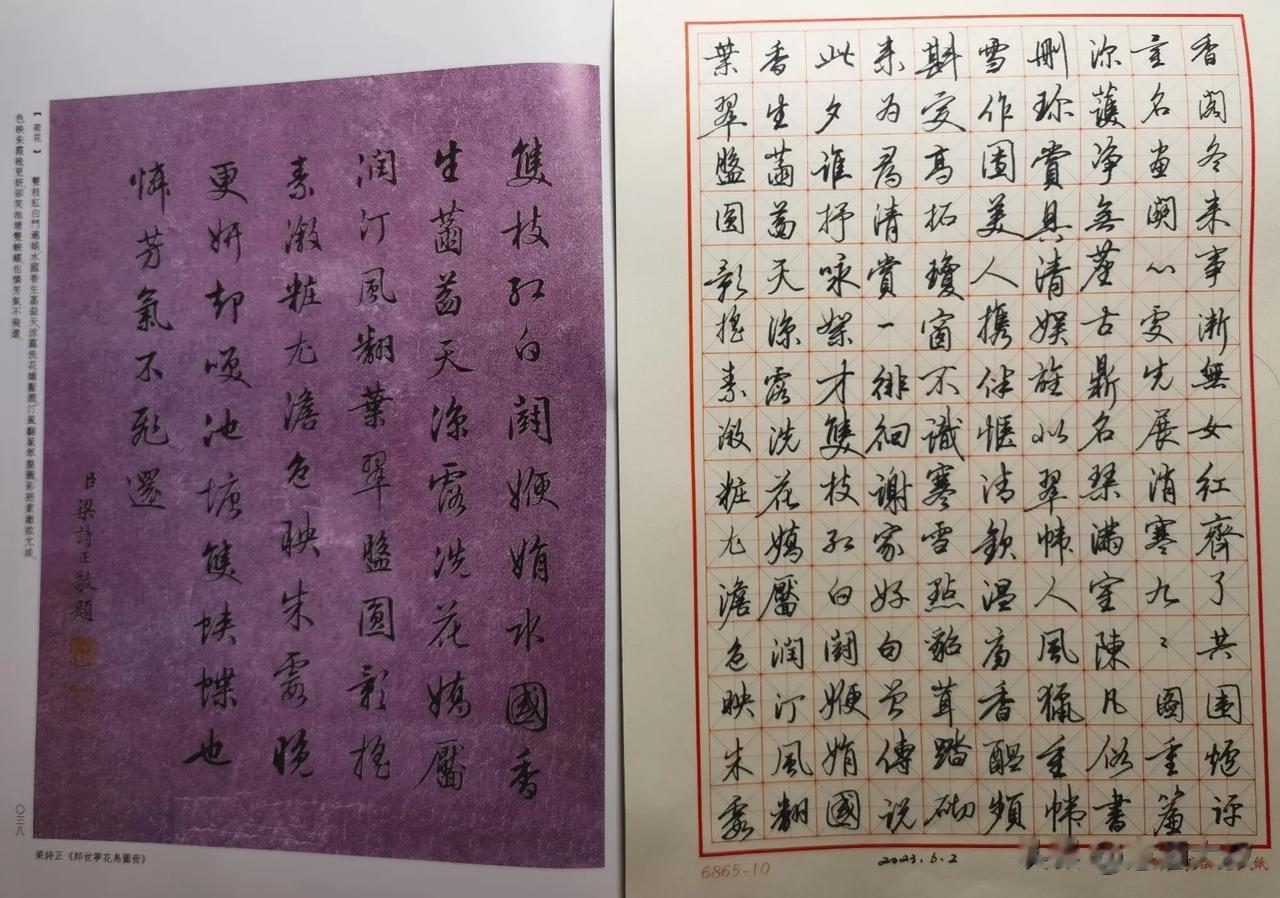 雙枝紅白鬪㛹娟水國香
生菡萏天涼露洗花嬌靨
潤汀風翻葉翠盤圓影搖
素激粧尤澹色映朱霞晚
更妍却笑池塘雙蛺蝶也
憐芳氣不飛還
臣梁詩正敬題
【荷花】 雙枝紅白鬥㛹娟水國香生菡萏天涼露洗花嬌靨潤汀風翻葉翠盤圓彩搖素激妝尤淡
色映朱霞晚更妍卻笑池塘雙蛺蝶也憐芳氣不飛還
〇三八
梁詩正《郎世寧花鳥圖冊》
香閣冬來事漸無女紅齊了共圍爐評
量名畫關心處先展消寒九九圖重簾
深護淨無塵古鼎名琴滿室陳凡俗書
刪珍賞具清娱難以翠帷人風獵重帷
雪作團美人攜伴愜清歡溫香醖頻
斟高拓瓊窗不識寒雪點貂茸踏砌
來為君清賞一徘徊謝家好句曾傳說
此夕誰抒咏絮才雙枝紅白鬪㛹娟國
香生菡萏天涼露洗花嬌靨潤汀風翻
葉翠盤圓影搖素激粧尤澹色映朱霞
6865-10
2023.6.2
紙